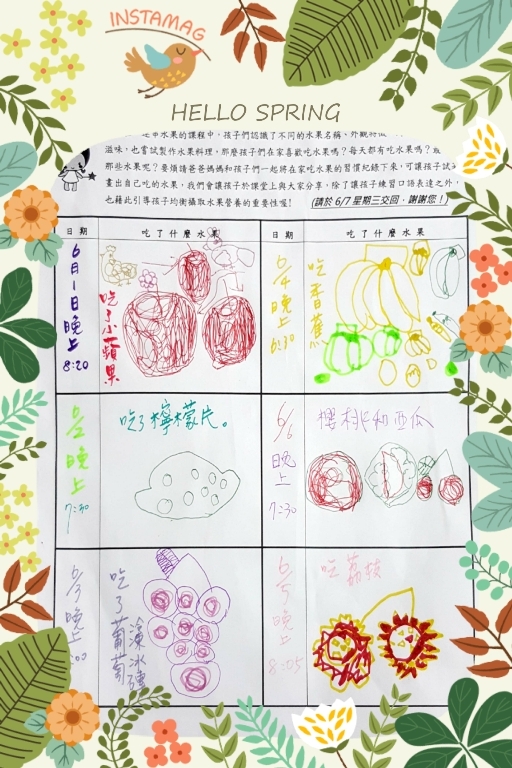 INSTAMAG
HELLO SPRING
水果的課程中，孩子們認識了不同的水果名稱、外觀特徵
滋味，也嘗試製作水果料理，那麼孩子們在家喜歡吃水果嗎？每天都有吃水果嗎？
那些水果呢？要煩請爸爸媽媽和孩子們一起將在家吃水果的習慣紀錄下來，可讓孩子試
畫出自己吃的水果，我們會讓孩子於課堂上與大家分享，除了讓孩子練習口語表達之外，
也藉此引導孩子均衡攝取水果營養的重要性喔！(請於 6/7 星期三交回，謝謝您！)
日期 吃了什麼水果 日期 吃了什麼水果
6月1日晚上 8:20
吃了小蘋果
6/4晚上 6:30
吃香蕉
6/2晚上 7:30
吃了檸檬片。
6/6晚上 7:30
櫻桃和西瓜
6/3晚上 :00
吃了葡萄
凍冰糖
6/5晚上 8:05
吃荔枝